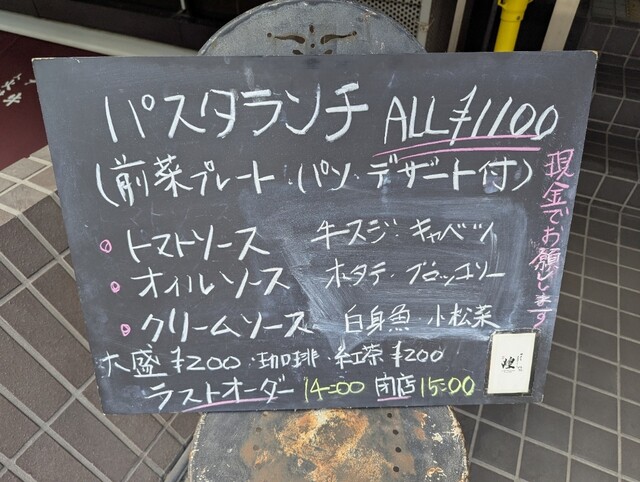 パスタランチ ALL ¥1100
(前菜プレート・パン・デザート付)
トマトソース 牛スジ・キャベツ
オイルソース ホタテ・ブロッコリー
クリームソース 白身魚・小松菜
大盛¥200・珈琲・紅茶¥200
ラストオーダー 14:00 閉店15:00
現金でお願いします
煌